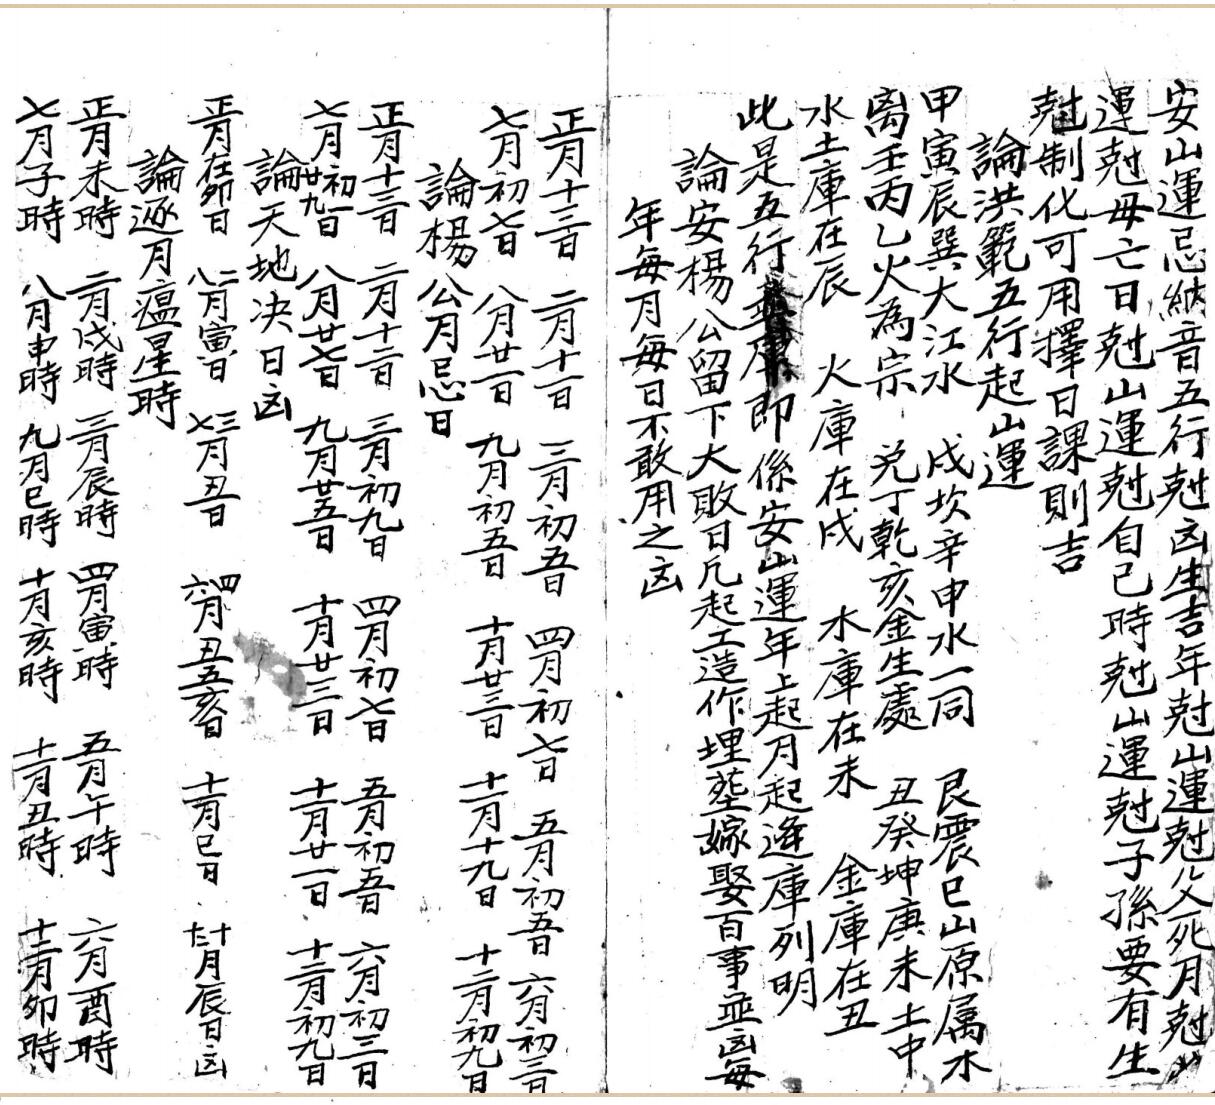 安山運忌納音五行尅凶生吉年尅山運尅父死月尅山
運尅母亡日尅山運尅自己時尅山運尅子孫要有生
尅制化可用擇日課則吉
論洪範五行起山運
甲寅辰巽大江水　戌坎辛申水一同　艮震巳山原属木
离壬丙乙火為宗　兑丁乾亥金生處　丑癸坤庚未土中
水土庫在辰　火庫在戍　木庫在未　金庫在丑
此是五行庫即係安山運年上起月起逄庫列明
論安楊公留下大敗日凡起工造作埋塟嫁娶百事並凶每
年每月每日不敢用之凶
正月十三日　二月十一日　三月初五日　四月初七日　五月初五日　六月初三日
七月初七日　八月廿一日　九月初五日　十月廿三日　十一月十九日　十二月初九日
論楊公月忌日
正月十三日　二月十二日　三月初九日　四月初七日　五月初五日　六月初三日
七月初一日廿九　八月廿七日　九月廿五日　十月廿三日　十一月廿一日　十二月初九日
論天地决日凶
正月在卯日　二八月寅日　三七月丑日　四六月丑五亥日　十一月巳日　十十二月辰日凶
論逐月瘟星時
正月未時　二月戍時　三月辰時　四月寅時　五月午時　六月酉時
七月子時　八月申時　九月巳時　十月亥時　十一月丑時　十二月卯時